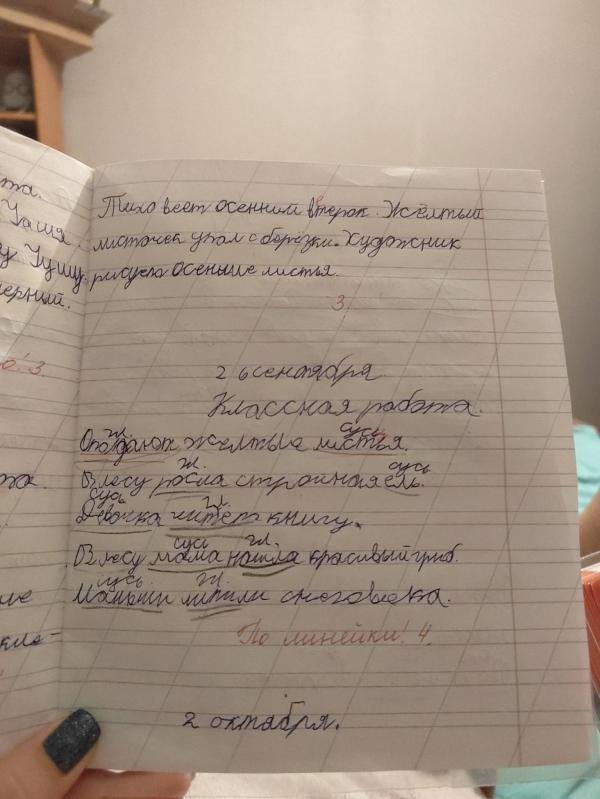 та.
Тихо веет осенним ветерок. Жёлтый
листочек упал с берёзки. Художник
рисуела осенние листья.
3
26 сентября
Классная работа.
гл. сусь
Опадают желтые листья.
гл. сусь
В лесу росла стройная ель.
сусь гл.
Девочка читает книгу.
сусь гл.
В лесу мама нашла красивый гриб.
сусь гл.
Малыши лепили снеговека.
По линейки! 4.
2 октября.